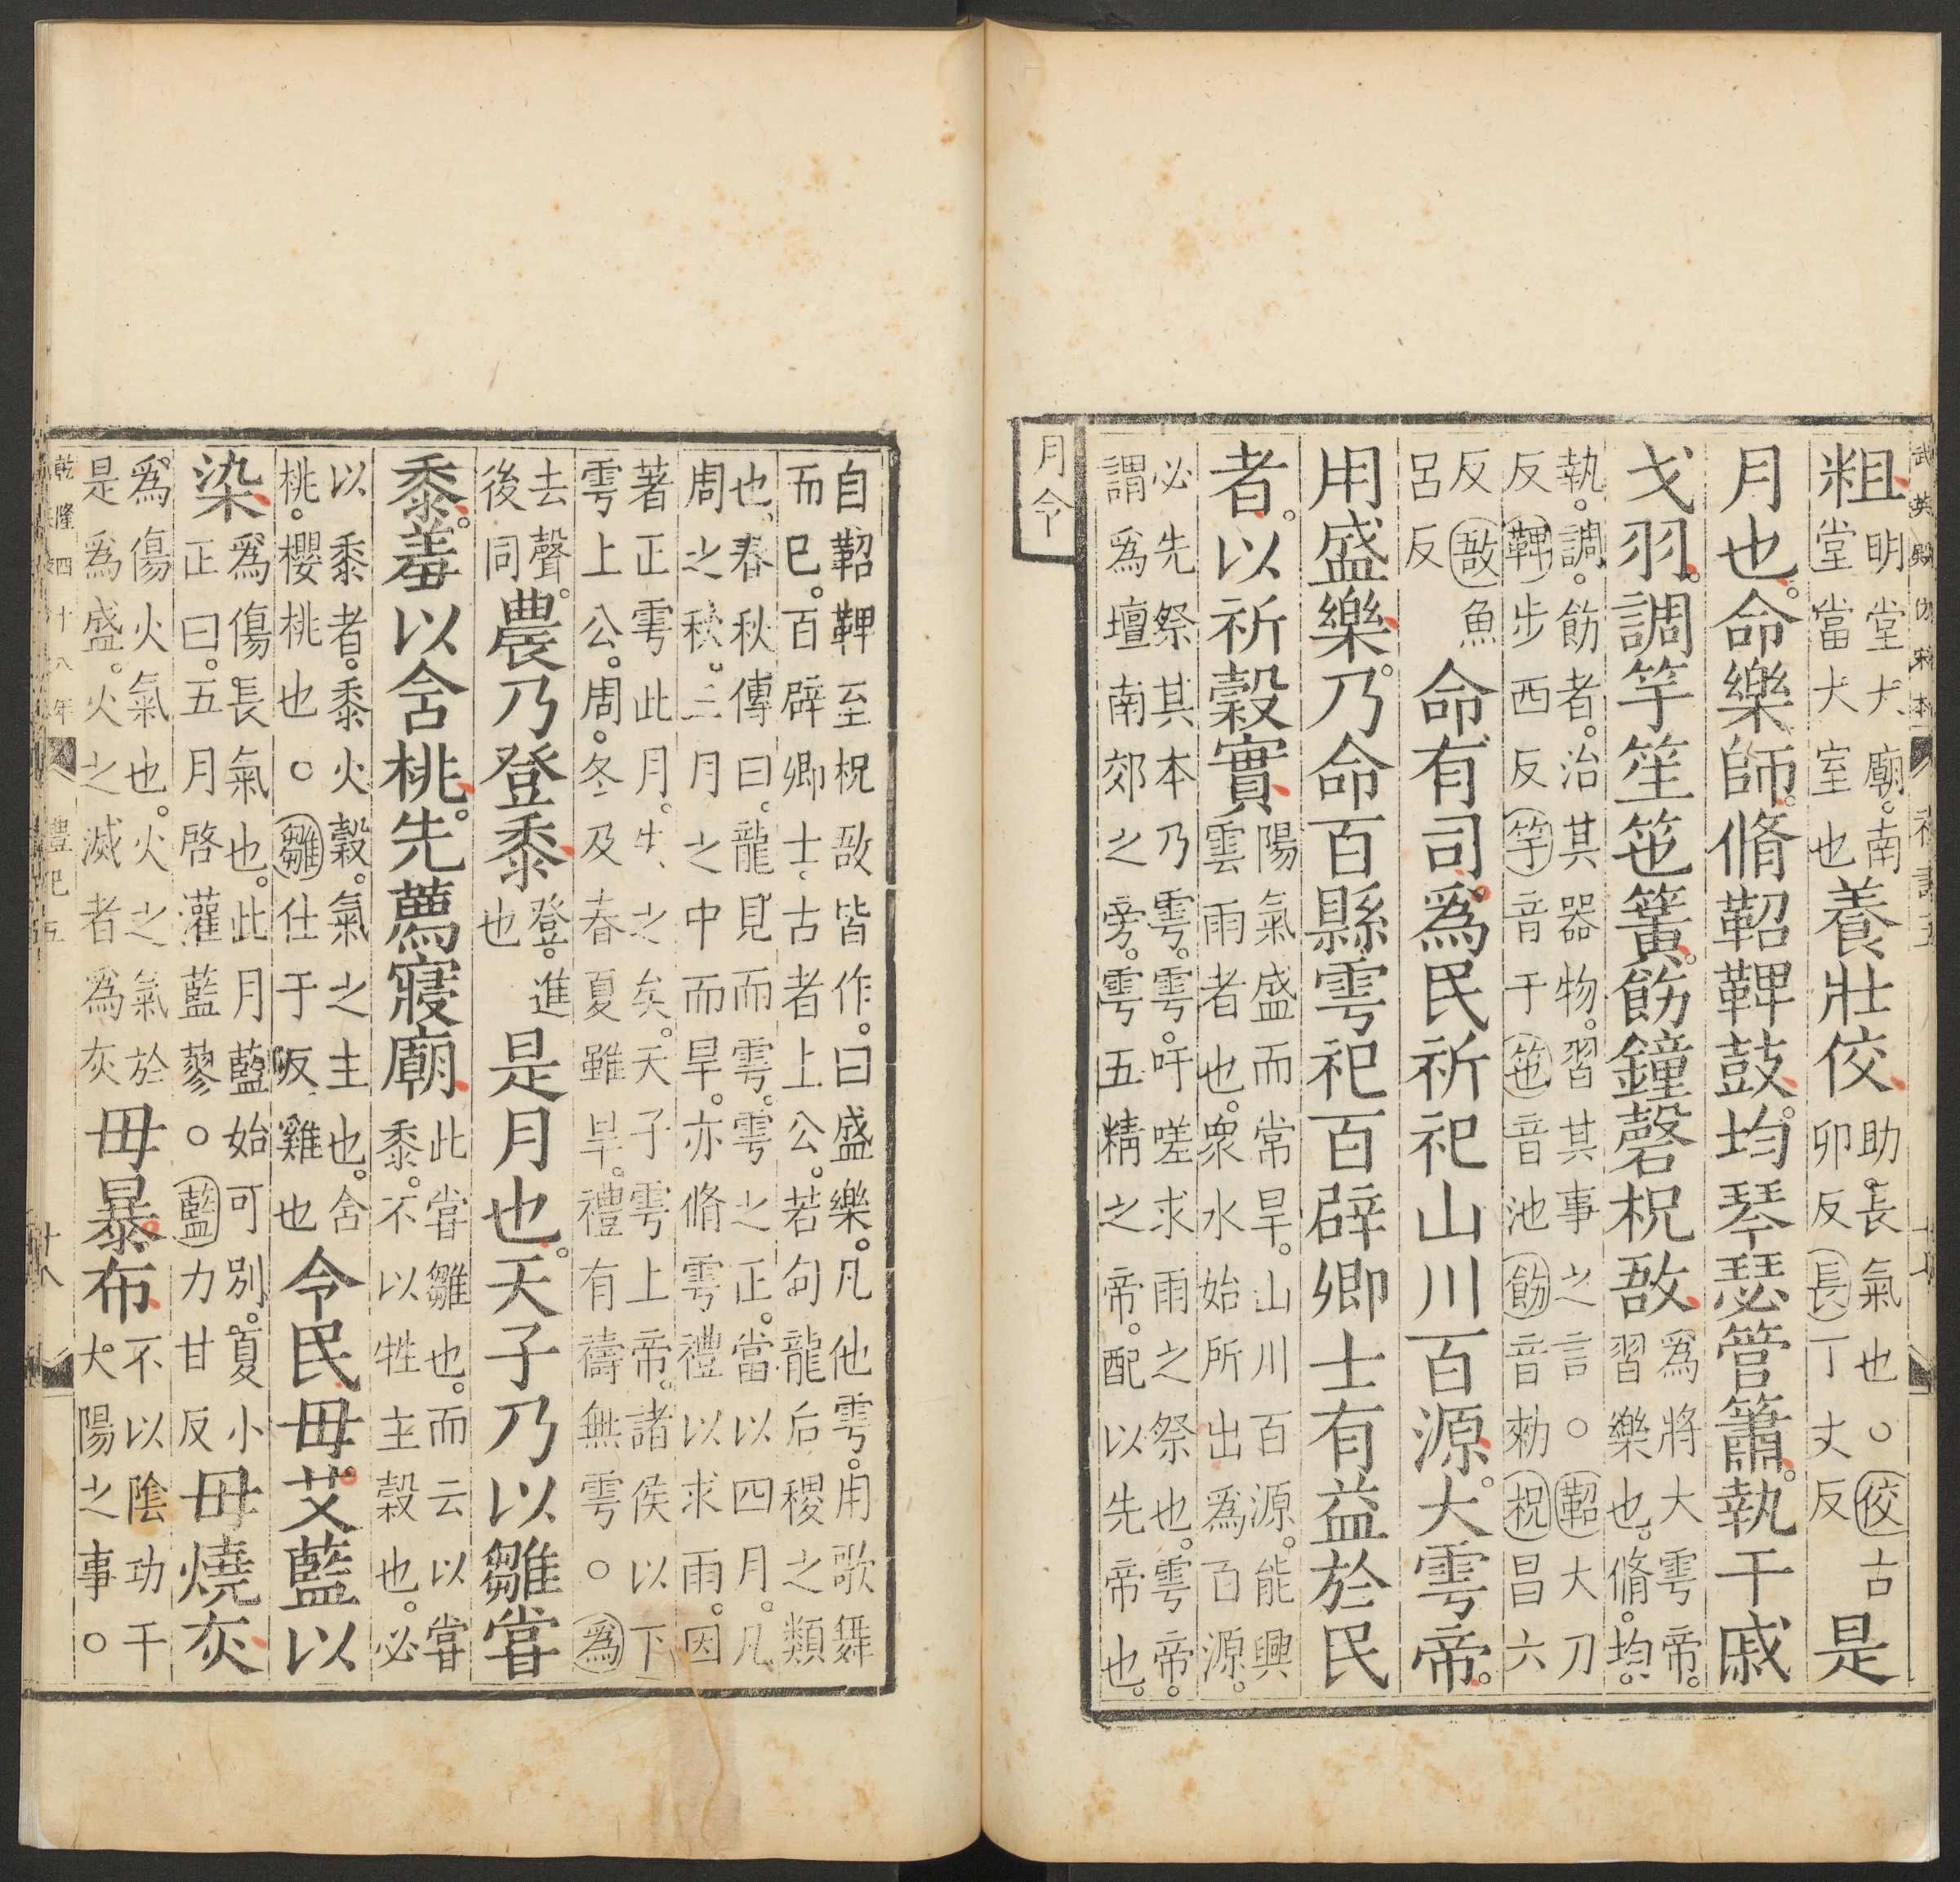 武英殿仿宋本 禮記五 十七
粗明堂大廟。南堂當大室也養壯佼助。長氣也○佼古卯反長丁丈反是
月也。命樂師。脩鞀鞞鼓。均琴瑟管簫。執干戚
戈羽。調竽笙竾簧。飭鐘磬柷敔爲將大雩帝。習樂也。脩。均。
執。調。飭者。治其器物。習其事之言○鞀大刀
反鞞步西反竽音于竾音池飭音勑柷昌六
反敔魚呂反命有司。爲民祈祀山川百源。大雩帝。
用盛樂。乃命百縣雩祀百辟卿士有益於民
者。以祈穀實陽氣盛而常旱。山川百源。能興雲雨者也。衆水始所出爲百源。
必先祭其本乃雩。雩。吁嗟求雨之祭也。雩帝。
謂爲壇南郊之旁。雩五精之帝。配以先帝也。
月令
自鞀鞞至柷敔皆作。曰盛樂。凡他雩。用歌舞
而已。百辟卿士。古者上公。若句龍后稷之類
也。春秋傳曰。龍見而雩。雩之正。當以四月。凡
周之秋。三月之中而旱。亦脩雩禮以求雨。因
著正雩此月。失之矣。天子雩上帝。諸侯以下
雩上公。周。冬及春夏雖旱。禮有禱無雩○爲
去聲。後同農乃登黍登。進也是月也。天子乃以雛嘗
黍。羞以含桃。先薦寢廟此嘗雛也。而云以嘗黍。不以牲主穀也。必
以黍者。黍火穀。氣之主也。含桃。櫻桃也○雛仕于反雞也令民毋艾藍以
染爲傷長氣也。此月藍始可別。夏小正曰。五月啓灌藍蓼○藍力甘反毋燒灰
爲傷火氣也。火之氣於是爲盛。火之滅者爲灰毋暴布不以陰功干大陽之事○
乾隆四十八年 禮記五 十八